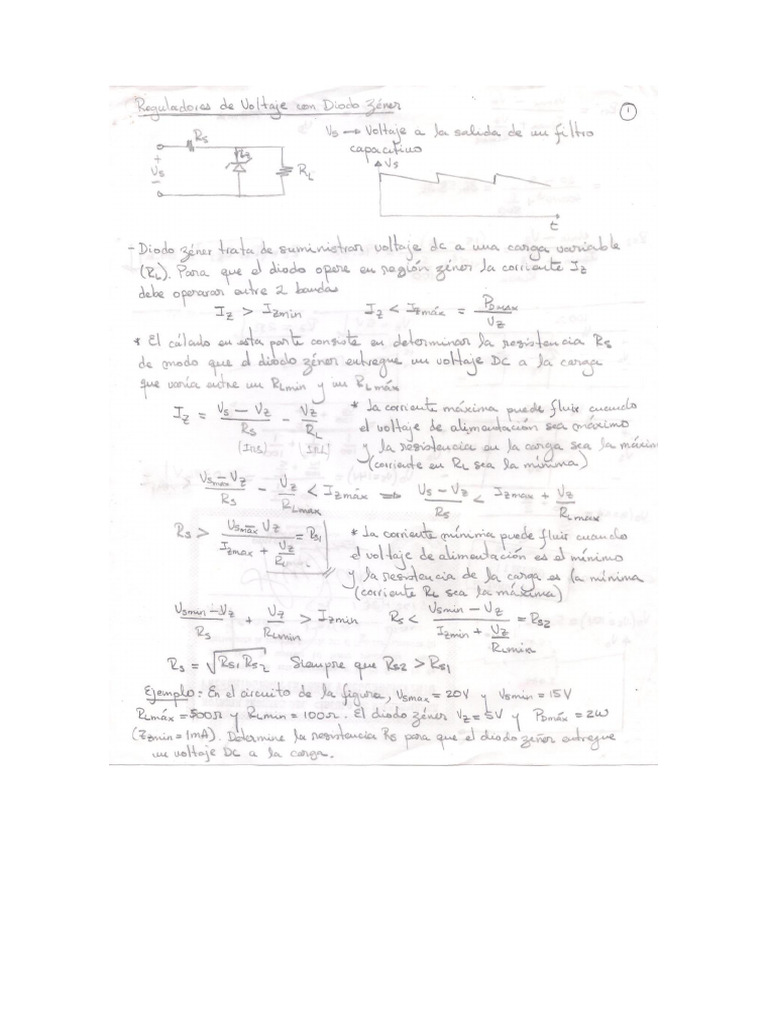 Reguladores de Voltaje con Diodo Zéner
1
Rs
Vs → Voltaje a la salida de un filtro
capacitivo
+
Vs
-
Vz
RL
Vs
t
- Diodo zéner trata de suministrar voltaje dc a una carga variable
(RL). Para que el diodo opere en región zéner la corriente Iz
debe operarar entre 2 bandas
Iz > Izmin    Iz < Izmáx = PDmax / Vz
* El cálculo en esta parte consiste en determinar la resistencia Rs
de modo que el diodo zéner entregue un voltaje DC a la carga
que varía entre un RLmin y un RLmáx
Iz = (Vs - Vz)/Rs - Vz/RL
(IRS) (IRL)
* La corriente máxima puede fluir cuando
el voltaje de alimentación sea máximo
y la resistencia en la carga sea la máxim
(corriente en RL sea la mínima)
(Vsmax - Vz)/Rs - Vz/RLmax < Izmáx ⇒ (Vs - Vz)/Rs < Izmax + Vz/RLmax
Rs > (Vsmax - Vz)/(Izmax + Vz/RL) = Rs1
* La corriente mínima puede fluir cuando
el voltaje de alimentación es el mínimo
y la resistencia de la carga es la mínima
(corriente RL sea la máxima)
(Vsmin - Vz)/Rs + Vz/RLmin > Izmin    Rs < (Vsmin - Vz)/(Izmin + Vz/RLmin) = Rs2
Rs = √(Rs1 Rs2)  Siempre que Rs2 > Rs1
Ejemplo: En el circuito de la figura, Vsmax = 20V y Vsmin = 15V
RLmáx = 500Ω y RLmin = 100Ω. El diodo zéner Vz = 5V y PDmáx = 2W
(Izmin = 1mA). Determine la resistencia Rs para que el diodo zéner entregue
un voltaje DC a la carga.